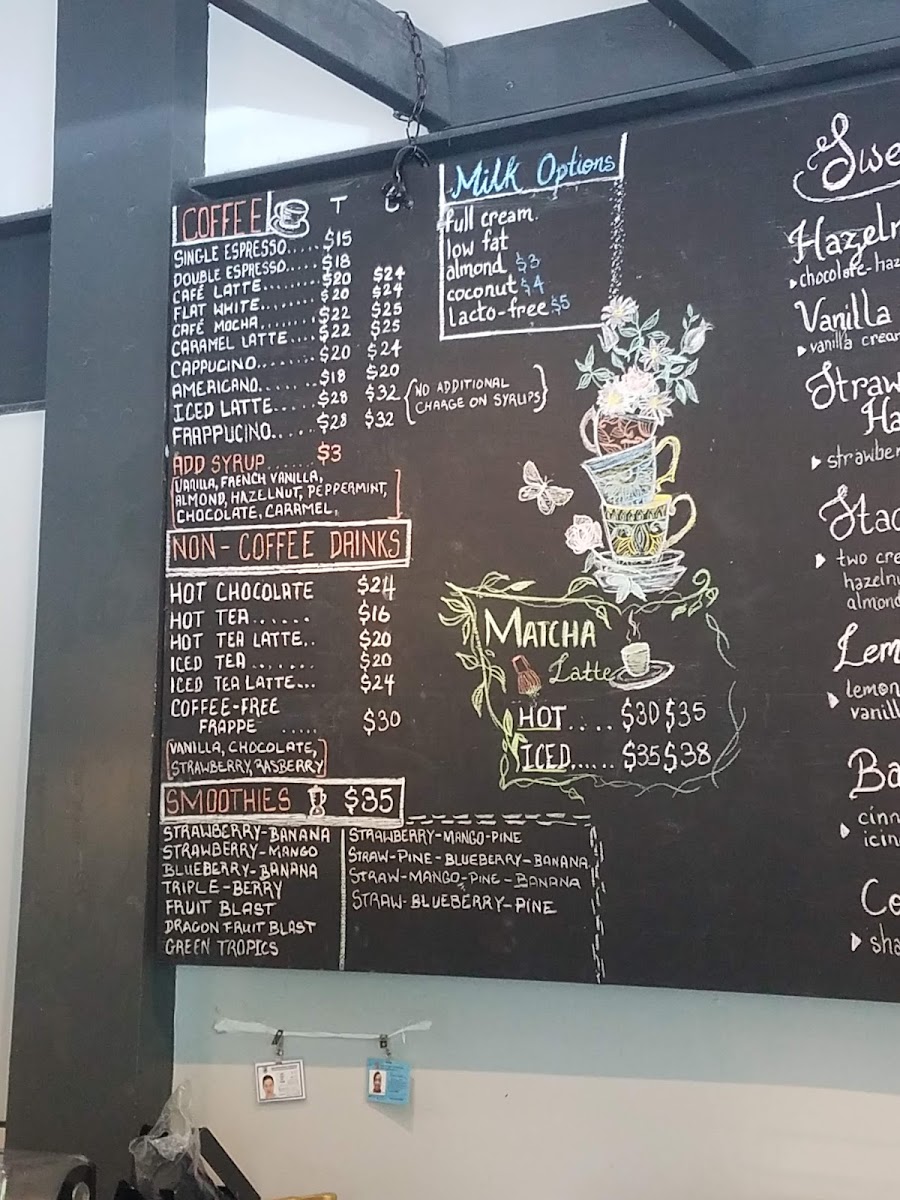 COFFEE T
SINGLE ESPRESSO..... $15
DOUBLE ESPRESSO..... $18
CAFÉ LATTE........ $20 $24
FLAT WHITE........ $20 $24
CAFÉ MOCHA........ $22 $25
CARAMEL LATTE.... $22 $25
CAPPUCINO........ $20 $24
AMERICANO........ $18 $20
ICED LATTE..... $28 $32
FRAPPUCINO..... $28 $32
(NO ADDITIONAL
CHARGE ON SYRUPS)
ADD SYRUP...... $3
[VANILLA, FRENCH VANILLA,
ALMOND, HAZELNUT, PEPPERMINT,
CHOCOLATE, CARAMEL,]
NON-COFFEE DRINKS
HOT CHOCOLATE $24
HOT TEA...... $16
HOT TEA LATTE.. $20
ICED TEA....... $20
ICED TEA LATTE... $24
COFFEE-FREE
FRAPPE ..... $30
[VANILLA, CHOCOLATE,
STRAWBERRY, RASBERRY]
SMOOTHIES $35
STRAWBERRY-BANANA
STRAWBERRY-MANGO
BLUEBERRY-BANANA
TRIPLE-BERRY
FRUIT BLAST
DRAGON FRUIT BLAST
GREEN TROPICS
STRAWBERRY-MANGO-PINE
STRAW-PINE-BLUEBERRY-BANANA
STRAW-MANGO-PINE-BANANA
STRAW-BLUEBERRY-PINE
Milk Options
full cream
low fat
almond $3
coconut $4
lacto-free $5
MATCHA
Latte
HOT.... $30 $35
ICED...... $35 $38
Swe
Hazeln
chocolate-haz
Vanilla
vanilla crea
Straw
Ha
strawber
Stac
two cre
hazeln
almon
Lem
lemon
vanill
Ba
cinn
icin
Co
sha